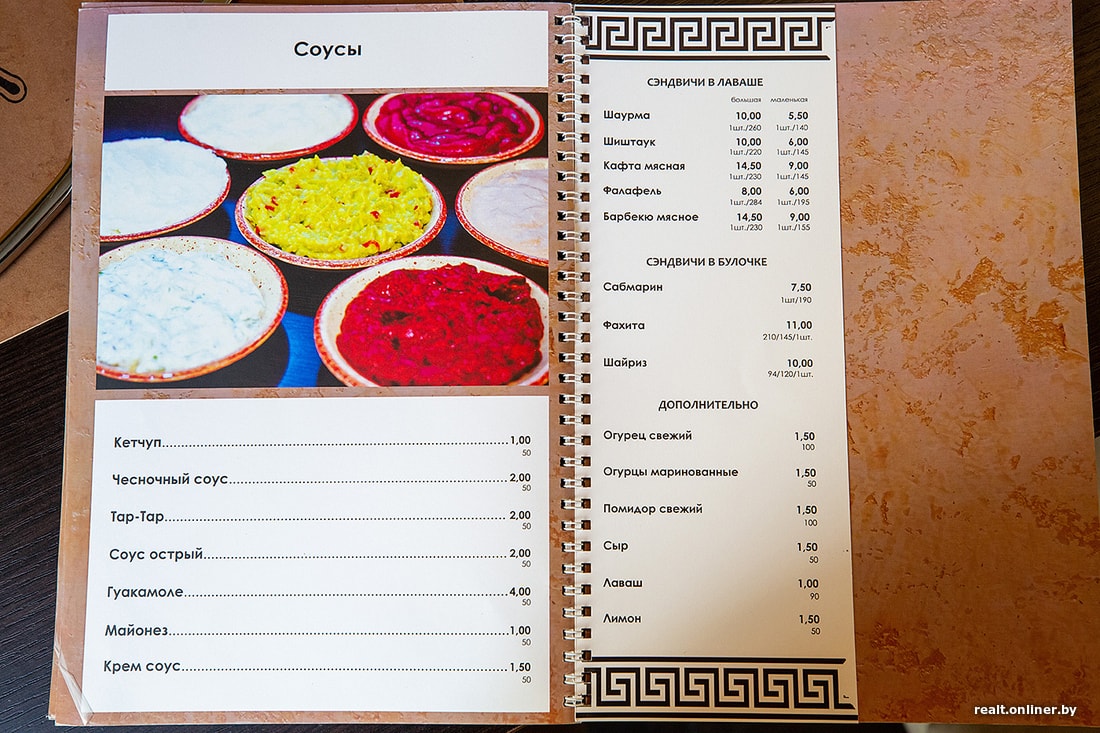 Соусы
Кетчуп 1,00
50
Чесночный соус 2,00
50
Тар-Тар 2,00
50
Соус острый 2,00
50
Гуакамоле 4,00
50
Майонез 1,00
50
Крем соус 1,50
50
СЭНДВИЧИ В ЛАВАШЕ
большая маленькая
Шаурма 10,00 5,50
1шт./260 1шт./140
Шиштаук 10,00 6,00
1шт./220 1шт./145
Кафта мясная 14,50 9,00
1шт./230 1шт./145
Фалафель 8,00 6,00
1шт./284 1шт./195
Барбекю мясное 14,50 9,00
1шт./230 1шт./155
СЭНДВИЧИ В БУЛОЧКЕ
Сабмарин 7,50
1шт/190
Фахита 11,00
210/145/1шт.
Шайриз 10,00
94/120/1шт.
ДОПОЛНИТЕЛЬНО
Огурец свежий 1,50
100
Огурцы маринованные 1,50
50
Помидор свежий 1,50
100
Сыр 1,50
50
Лаваш 1,00
90
Лимон 1,50
50
realt.onliner.by